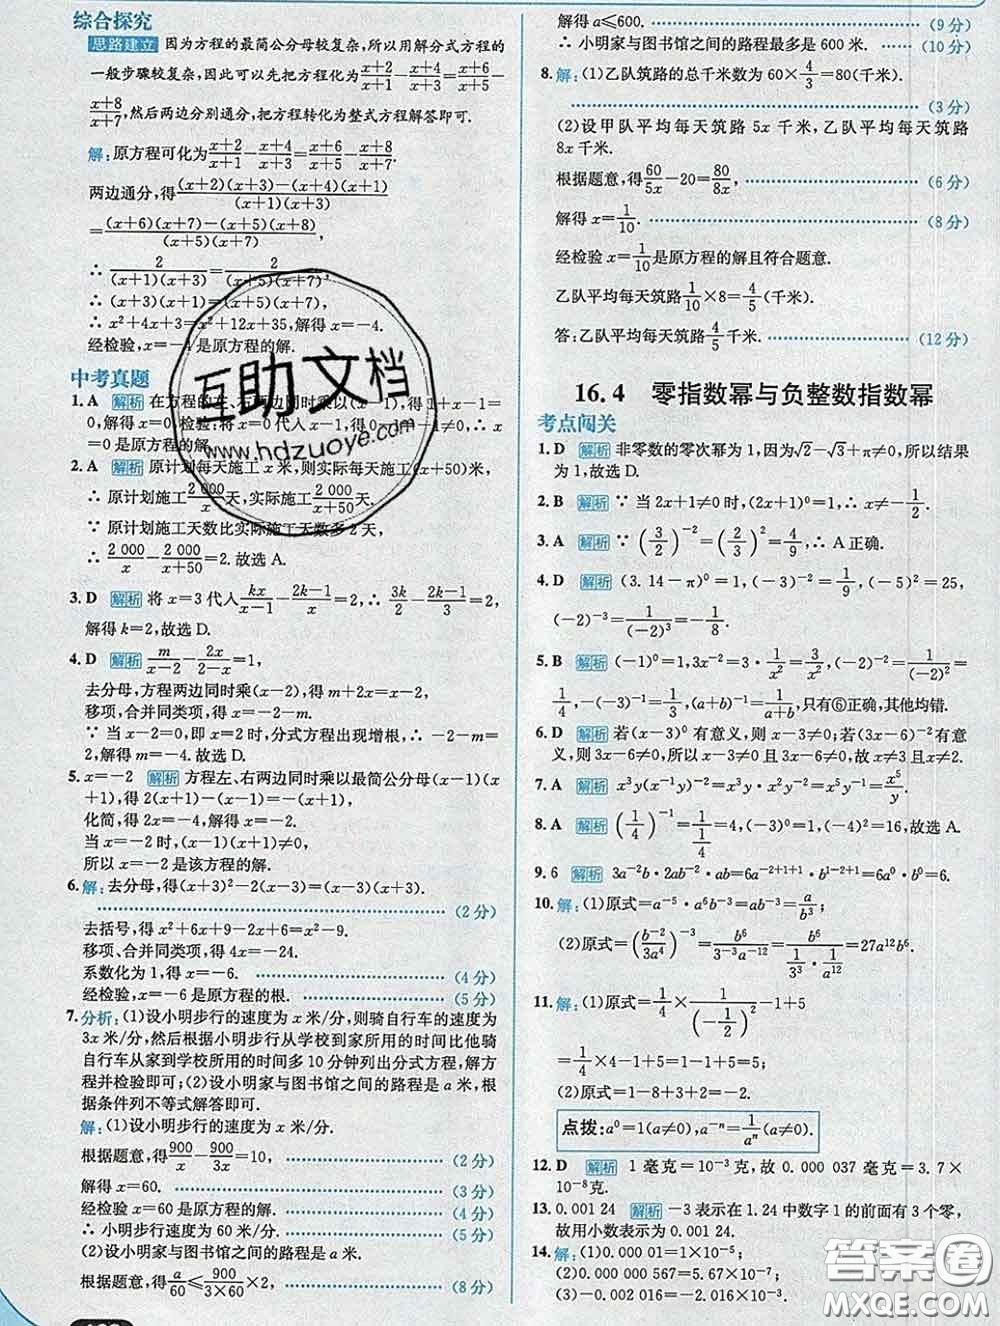 综合探究
思路建立 因为方程的最简公分母较复杂,所以用解分式方程的
一般步骤较复杂,因此可以先把方程化为(x+2)/(x+1)-(x+4)/(x+3)=(x+6)/(x+5)-
(x+8)/(x+7),然后两边分别通分,把方程转化为整式方程解答即可.
解:原方程可化为(x+2)/(x+1)-(x+4)/(x+3)=(x+6)/(x+5)-(x+8)/(x+7).
两边通分,得((x+2)(x+3)-(x+4)(x+1))/((x+1)(x+3))
=((x+6)(x+7)-(x+5)(x+8))/((x+5)(x+7)),
∴ 2/((x+1)(x+3))=2/((x+5)(x+7)),
∴ x²+4x+3=x²+12x+35,解得x=-4.
经检验,x=-4是原方程的解.
中考真题
1. A 解析 在方程的左、右两边同时乘以(x-1),得1+x-1=
0,解得x=0.检验:将x=0代入x-1,得x-1=-1≠0,故x=0
是原方程的解.
2. A 解析 原计划每天施工x米,则实际每天施工(x+50)米,
∴ 原计划施工2 000/x天,实际施工2 000/(x+50)天.
∵ 原计划施工天数比实际施工天数多2天,
∴ 2 000/x-2 000/(x+50)=2.故选A.
3. D 解析 将x=3代入kx/(x-1)-(2k-1)/x=2,∴ 3k/2-(2k-1)/3=2,
解得k=2,故选D.
4. D 解析 m/(x-2)-2x/(2-x)=1,
去分母,方程两边同时乘(x-2),得m+2x=x-2.
移项,合并同类项,得x=-2-m.
∵ 当x-2=0,即x=2时,分式方程出现增根,∴ -2-m=
2,解得m=-4.故选D.
5. x=-2 解析 方程左、右两边同时乘以最简公分母(x-1)(x
+1),得2(x+1)-(x-1)=-(x+1),
化简,得2x=-4,解得x=-2.
当x=-2时,(x-1)(x+1)≠0,
所以x=-2是该方程的解.
6. 解:去分母,得(x+3)²-2(x-3)=(x-3)(x+3).
(2分)
去括号,得x²+6x+9-2x+6=x²-9.
移项、合并同类项,得4x=-24.
系数化为1,得x=-6. (4分)
经检验,x=-6是原方程的根. (5分)
7. 分析:(1)设小明步行的速度为x米/分,则骑自行车的速度为
3x米/分,然后根据小明步行从学校到家所用的时间比他骑
自行车从家到学校所用的时间多10分钟列出分式方程,解方
程并检验即可;(2)设小明家与图书馆之间的路程是a米,根
据条件列不等式解答即可.
解:(1)设小明步行的速度为x米/分.
根据题意,得900/x-900/3x=10, (2分)
解得x=60. (3分)
经检验x=60是原方程的解. (4分)
∴ 小明步行的速度为60米/分. (5分)
(2)设小明家与图书馆之间的路程是a米.
根据题意,得a/60≤900/(3×60)×2, (8分)
解得a≤600. (9分)
∴ 小明家与图书馆之间的路程最多是600米. (10分)
8. 解:(1)乙队筑路的总千米数为60×4/3=80(千米).
(3分)
(2)设甲队平均每天筑路5x千米,乙队平均每天筑路
8x千米.
根据题意,得60/5x-20=80/8x, (6分)
解得x=1/10. (8分)
经检验x=1/10是原方程的解且符合题意.
乙队平均每天筑路1/10×8=4/5(千米).
答:乙队平均每天筑路4/5千米. (12分)
16.4 零指数幂与负整数指数幂
考点闯关
1. D 解析 非零数的零次幂为1,因为√2-√3+π≠0,所以结果
为1,故选D.
2. B 解析 ∵ 当2x+1≠0时,(2x+1)⁰=1,∴ x≠-1/2.
3. A 解析 ∵ (3/2)⁻²=(2/3)²=4/9,∴ A正确.
4. D 解析 (3.14-π)⁰=1,(-3)⁻²=1/9,(-5)²=25,
(-2)⁻³=1/(-2)³=-1/8.
5. B 解析 (-1)⁰=1,3x⁻²=3·1/x²=3/x²,(-2)⁻²=1/(-2)²=
1/4,-(-1)=1,3⁻¹=1/3,(a+b)⁻¹=1/(a+b),只有⑥正确,其他均错.
6. D 解析 若(x-3)⁰有意义,则x-3≠0;若(3x-6)⁻²有意
义,则3x-6≠0,所以x-3≠0且3x-6≠0,故x≠3且x≠2.
7. A 解析 x³y(x⁻¹y)⁻²=x³y·x²y⁻²=x⁵y⁻¹=x⁵/y.
8. A 解析 (1/4)⁻¹=1/(1/4)=4,(-1)²=1,(-4)²=16,故选A.
9. 6 解析 3a⁻²b·2ab⁻²·ab=6a⁻²⁺¹⁺¹·b¹⁻²⁺¹=6a⁰·b⁰=6.
10. 解:(1)原式=a⁻⁵·a⁶b⁻³=ab⁻³=a/b³;
(2)原式=(b⁻²/3a⁴)⁻³=b⁶/(3⁻³a⁻¹²)=b⁶/(1/3³·1/a¹²)=27a¹²b⁶.
11. 解:(1)原式=1/4×1/(-1/2)²-1+5
=1/4×4-1+5=1-1+5=5;
(2)原式=1-8+3+2=-2.
点拨:a⁰=1(a≠0),a⁻ⁿ=1/aⁿ(a≠0).
12. D 解析 1毫克=10⁻³克,故0.000 037毫克=3.7×
10⁻⁸克.
13. 0.001 24 解析 -3表示在1.24中数字1的前面有3个零,
故用小数表示为0.001 24.
14. 解:(1)0.000 01=1×10⁻⁵;
(2)0.000 000 567=5.67×10⁻⁷;
(3)-0.002 016=-2.016×10⁻³.
互助文档
www.hdzuoye.com
答案圈
MXQE.COM